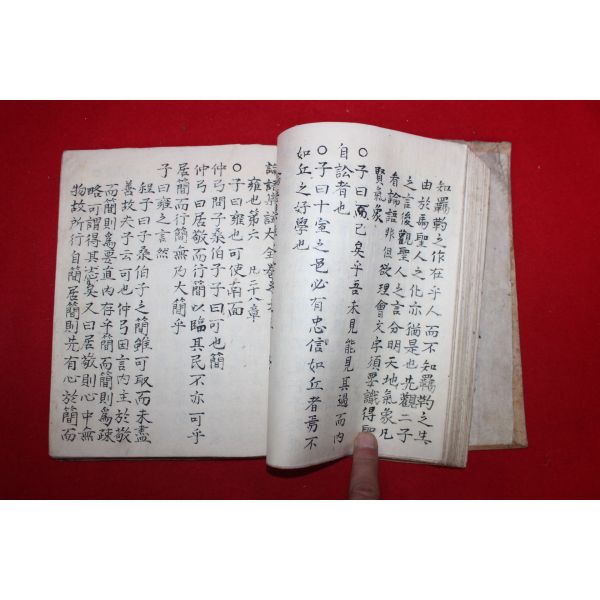 知羈靮之作在乎人而不知羈靮之生
由於馬聖人之化亦猶是也先觀二子
之言後觀聖人之言分明天地氣象凡
看論語非但欲理會文字須要識得聖
賢氣象
○子曰已矣乎吾未見能見其過而內
自訟者也
○子曰十室之邑必有忠信如丘者焉不
如丘之好學也
論語集註大全卷之六
雍也第六 凡二十八章
○子曰雍也可使南面
仲弓問子桑伯子子曰可也簡
仲弓曰居敬而行簡以臨其民不亦可乎
居簡而行簡無乃大簡乎
子曰雍之言然
程子曰子桑伯子之簡雖可取而未盡
善故夫子云可也仲弓因言內主於敬
而簡則爲要直內存乎簡而簡則爲疎
略可謂得其旨矣又曰居敬則心中無
物故所行自簡居簡則先有心於簡而